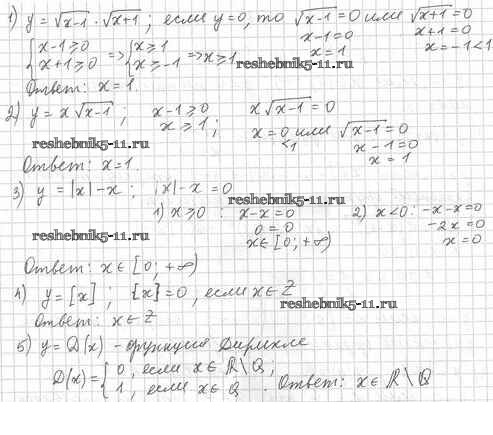 1) y = √x-1 · √x+1 ; если y=0, то √x-1 = 0 или √x+1 = 0
x-1=0 x+1=0
{ x-1≥0 x+1≥0 => { x≥1 x≥-1 => x≥1 x=1 x=-1<1
reshebnik5-11.ru
Ответ: x=1.
2) y = x√x-1 ; x-1≥0 x√x-1 = 0
x≥1 ; x=0 или √x-1 = 0
<1 x-1=0
reshebnik5-11.ru
x=1
Ответ: x=1.
3) y = |x|-x ; |x|-x=0
reshebnik5-11.ru
1) x≥0 : x-x=0 2) x<0: -x-x=0
0=0 -2x=0
reshebnik5-11.ru
x∈[0;+∞) x=0
Ответ: x∈[0;+∞)
4) y=[x] ; {x}=0, если x∈Z
reshebnik5-11.ru
Ответ: x∈Z
5) y=D(x) - функция Дирихле
D(x)= { 0, если x∈R\Q ;
1, если x∈Q . Ответ: x∈R\Q